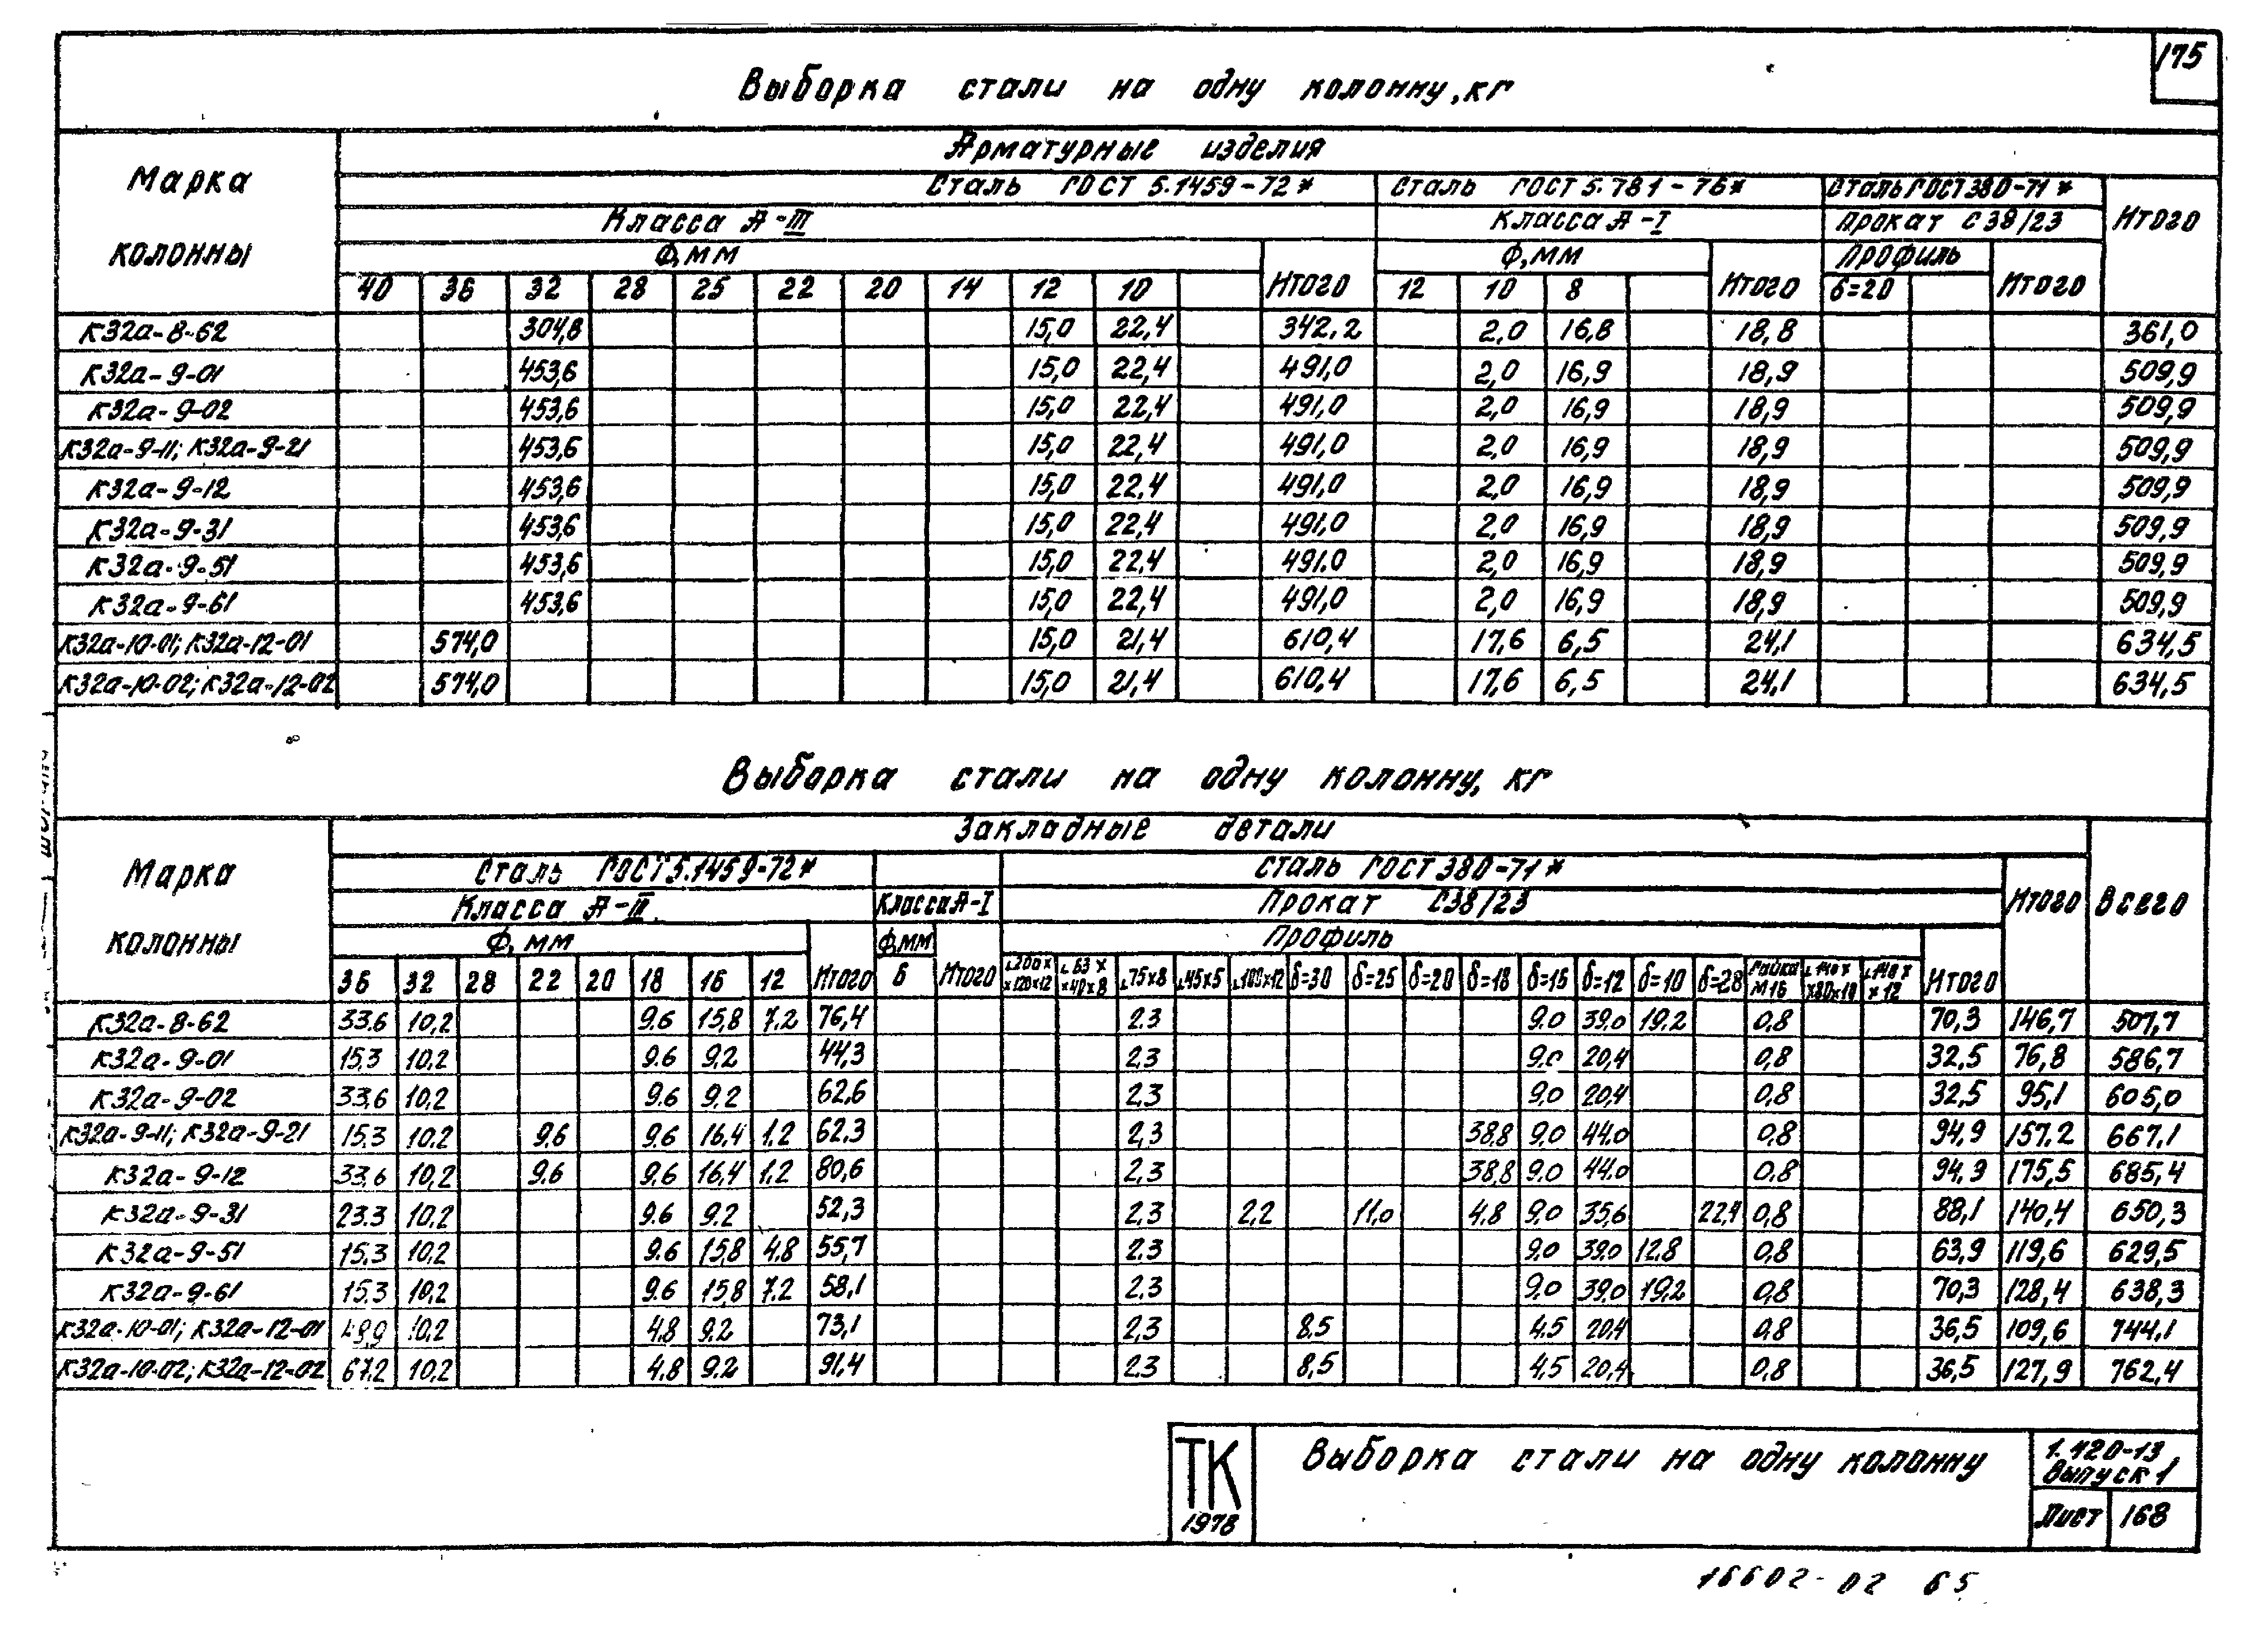 175
Выборка стали на одну колонну, кг
Марка колонны
Арматурные изделия
Сталь ГОСТ 5.1459-72* Сталь ГОСТ 5.781-76* Сталь ГОСТ 380-71* Итого
Класса А-III Класса А-I Прокат С38/23
Ф, мм Итого Ф, мм Итого Профиль Итого
40 36 32 28 25 22 20 14 12 10 12 10 8 δ=20
К32а-8-62 304,8 15,0 22,4 342,2 2,0 16,8 18,8 361,0
К32а-9-01 453,6 15,0 22,4 491,0 2,0 16,9 18,9 509,9
К32а-9-02 453,6 15,0 22,4 491,0 2,0 16,9 18,9 509,9
К32а-9-11; К32а-9-21 453,6 15,0 22,4 491,0 2,0 16,9 18,9 509,9
К32а-9-12 453,6 15,0 22,4 491,0 2,0 16,9 18,9 509,9
К32а-9-31 453,6 15,0 22,4 491,0 2,0 16,9 18,9 509,9
К32а-9-51 453,6 15,0 22,4 491,0 2,0 16,9 18,9 509,9
К32а-9-61 453,6 15,0 22,4 491,0 2,0 16,9 18,9 509,9
К32а-10-01; К32а-12-01 574,0 15,0 21,4 610,4 17,6 6,5 24,1 634,5
К32а-10-02; К32а-12-02 574,0 15,0 21,4 610,4 17,6 6,5 24,1 634,5
Выборка стали на одну колонну, кг
Марка колонны
Закладные детали
Сталь ГОСТ 5.1459-72* Сталь ГОСТ 380-71* Итого Всего
Класса А-III Класса А-I Прокат С38/23
Ф, мм Ф, мм Профиль
36 32 28 22 20 18 16 12 Итого 6 Итого ∟200××120×12 ∟63××40×8 ∟75×8 ∟45×5 ∟100×12 δ=30 δ=25 δ=20 δ=18 δ=16 δ=12 δ=10 δ=28 Гайка М16 ∟140××80×10 ∟140××12 Итого
К32а-8-62 33,6 10,2 9,6 15,8 7,2 76,4 2,3 9,0 39,0 19,2 0,8 70,3 146,7 507,7
К32а-9-01 15,3 10,2 9,6 9,2 44,3 2,3 9,0 20,4 0,8 32,5 76,8 586,7
К32а-9-02 33,6 10,2 9,6 9,2 62,6 2,3 9,0 20,4 0,8 32,5 95,1 605,0
К32а-9-11; К32а-9-21 15,3 10,2 9,6 9,6 16,4 1,2 62,3 2,3 38,8 9,0 44,0 0,8 94,9 157,2 667,1
К32а-9-12 33,6 10,2 9,6 9,6 16,4 1,2 80,6 2,3 38,8 9,0 44,0 0,8 94,9 175,5 685,4
К32а-9-31 23,3 10,2 9,6 9,2 52,3 2,3 2,2 11,0 4,8 9,0 35,6 22,4 0,8 88,1 140,4 650,3
К32а-9-51 15,3 10,2 9,6 15,8 4,8 55,7 2,3 9,0 39,0 12,8 0,8 63,9 119,6 629,5
К32а-9-61 15,3 10,2 9,6 15,8 7,2 58,1 2,3 9,0 39,0 19,2 0,8 70,3 128,4 638,3
К32а-10-01; К32а-12-01 48,9 10,2 4,8 9,2 73,1 2,3 8,5 4,5 20,4 0,8 36,5 109,6 744,1
К32а-10-02; К32а-12-02 67,2 10,2 4,8 9,2 91,4 2,3 8,5 4,5 20,4 0,8 36,5 127,9 762,4
ТК
1978
Выборка стали на одну колонну
1.420-13
Выпуск 1
Лист 168
16602-02 65